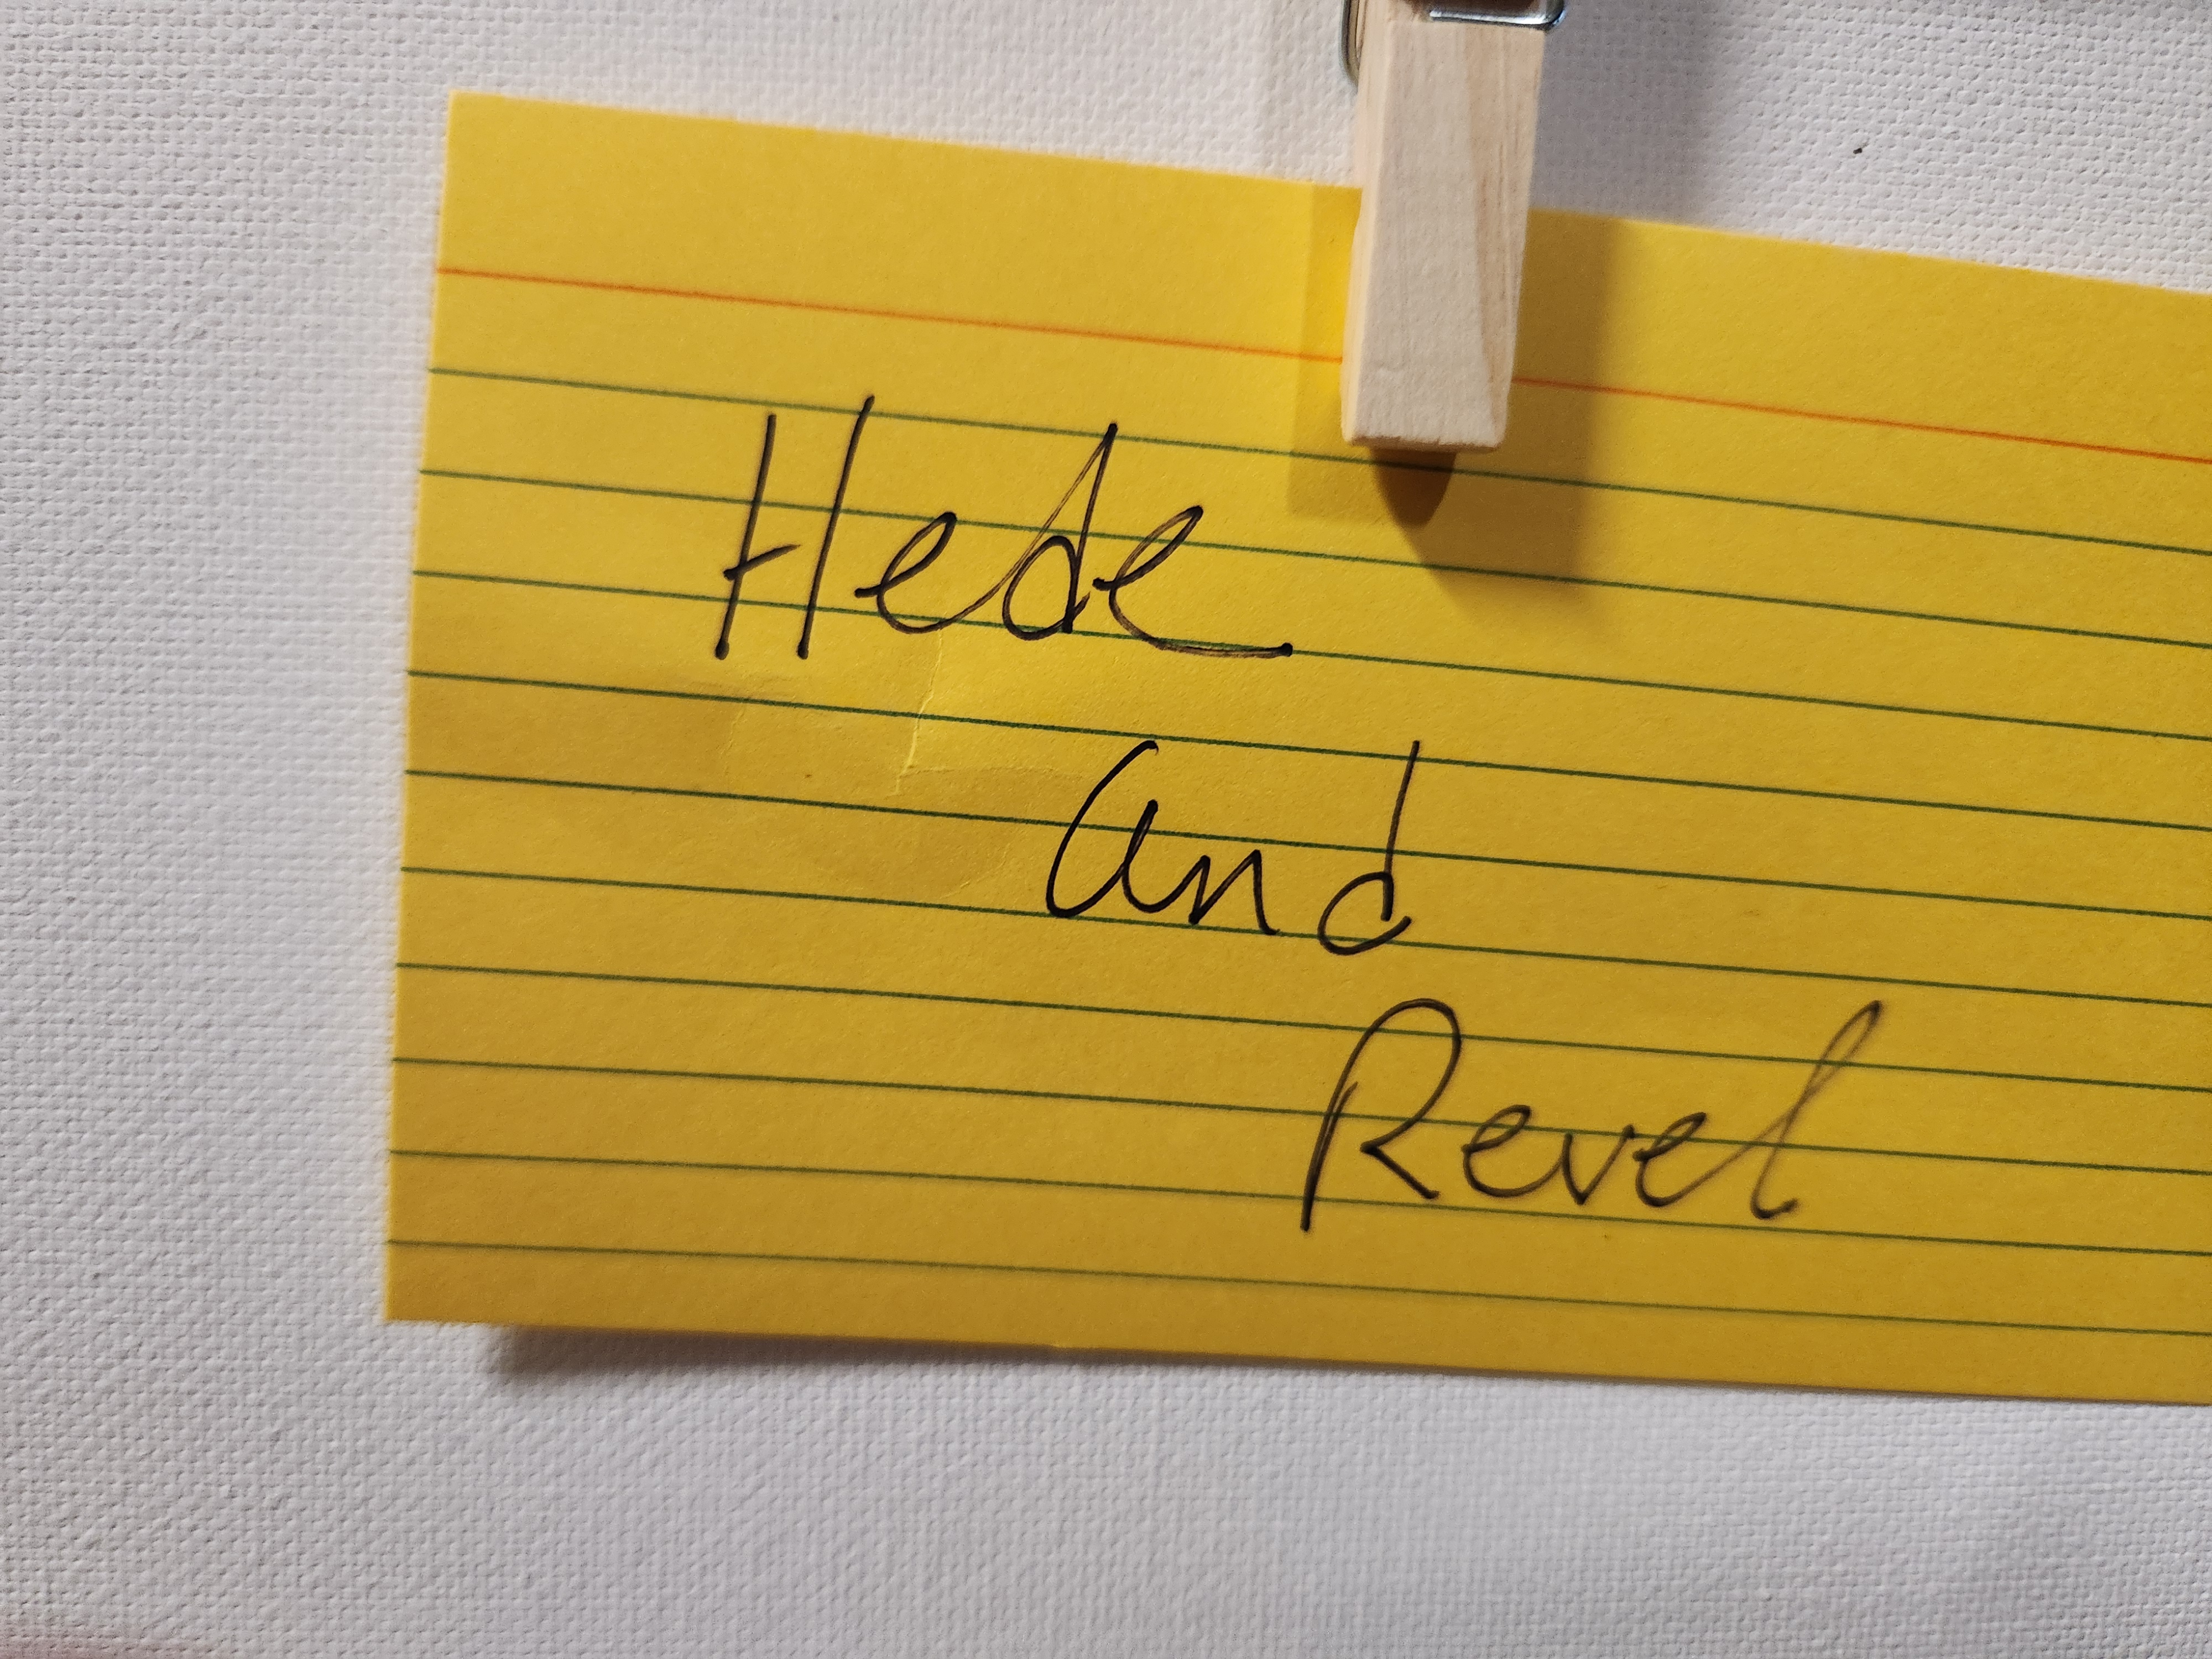 Hede
and
Revel